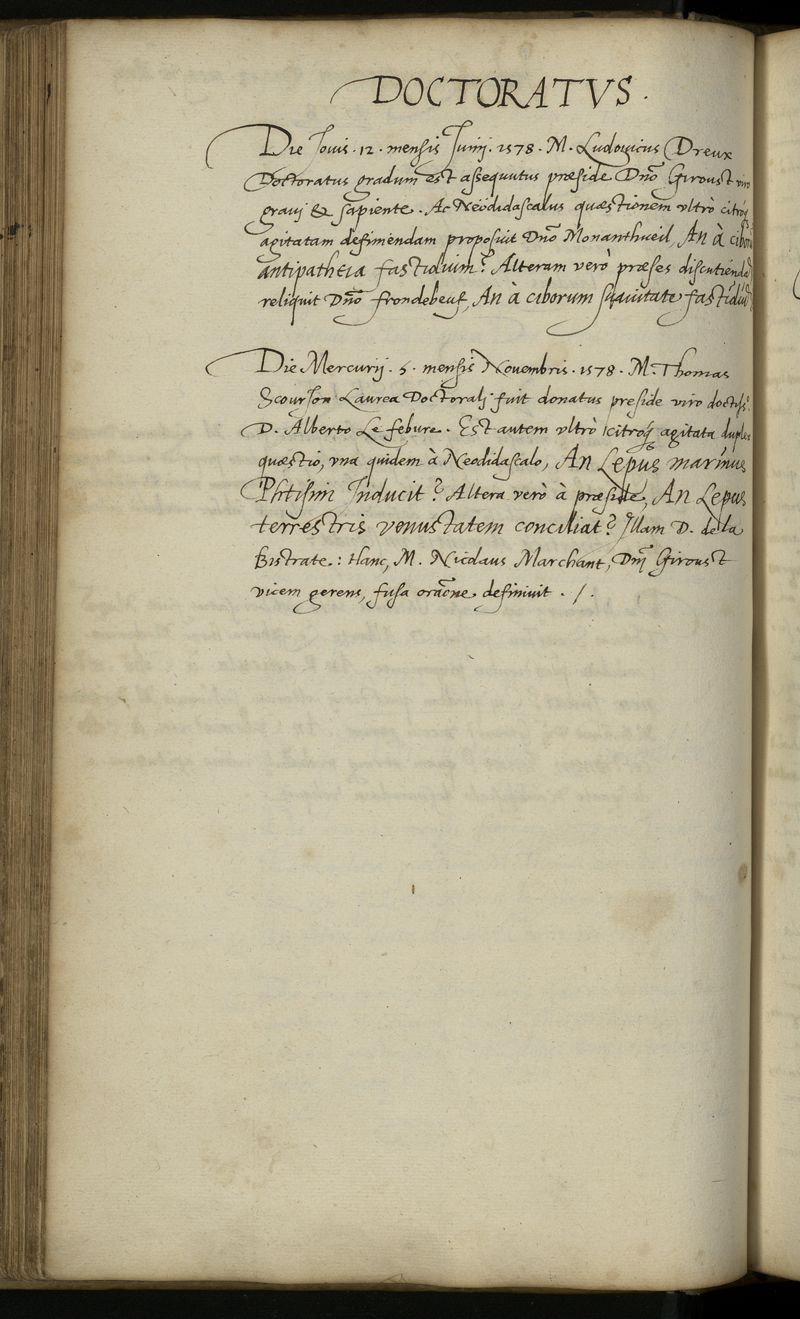 DOCTORATVS.
Die Jouis .12. mensis Junij. 1578. M. Ludouicus Dreux
Doctoratus gradum est assequutus præside Dno Giroust viro
graui & sapiente. Ac Neodidascalus quæstionem vltrò citróq
agitatam desimendam proposuit Dno Monantheuil, An à ciborū
antipatheia fastidium? Alteram verò præses discutiendā
reliquit Dno frondebeuf, An à ciborum suauitate fastidiū
Die Mercurij .5. mensis Nouembris .1578. M. Thomas
Scourjon Laurea Doctoralj fuit donatus preside viro doctiss.
D. Alberto Le febure. Est autem vltrò citróq agitata duplex
quæstio, vna quidem à Neodidascalo, An Lepus marinus
Phtisim Inducit? Altera verò à præside, An Lepus
terrestris venustatem conciliat? Illam D. de la
Bistrate.: Hanc, M. Nicolaus Marchant, Dnj Giroust
vicem gerens, fusa oraōne definiuit ./.